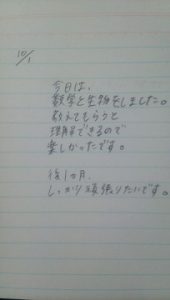 10/1
今日は、
数学と生物をしました。
教えてもらうと
理解できるので
楽しかったです。
後1ヶ月、
しっかり頑張りたいです。